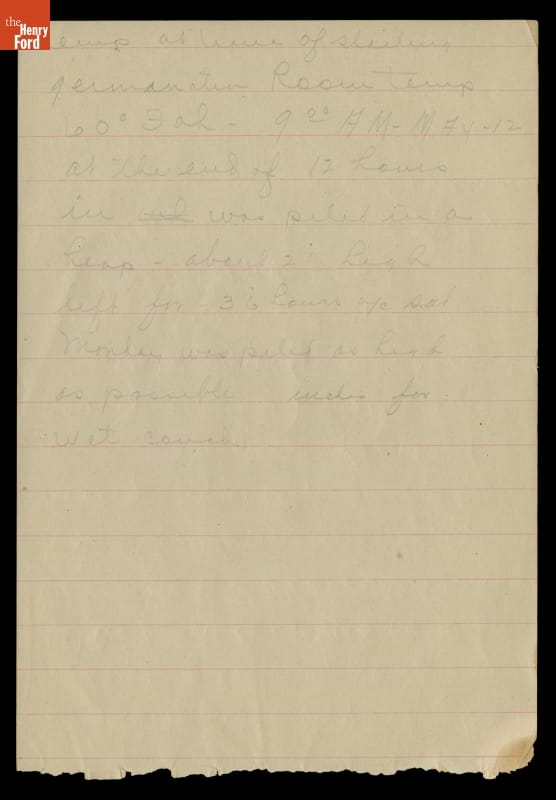 the
Henry
Ford
temp at time of starting
germanation Room temp
60° Fah - 9 00 AM - MAy - 12
at the end of 12 hours
in was piled in a
heap - about 2" high
left for 36 hours
Monday was piled as high
as possible inches for
wet couch.